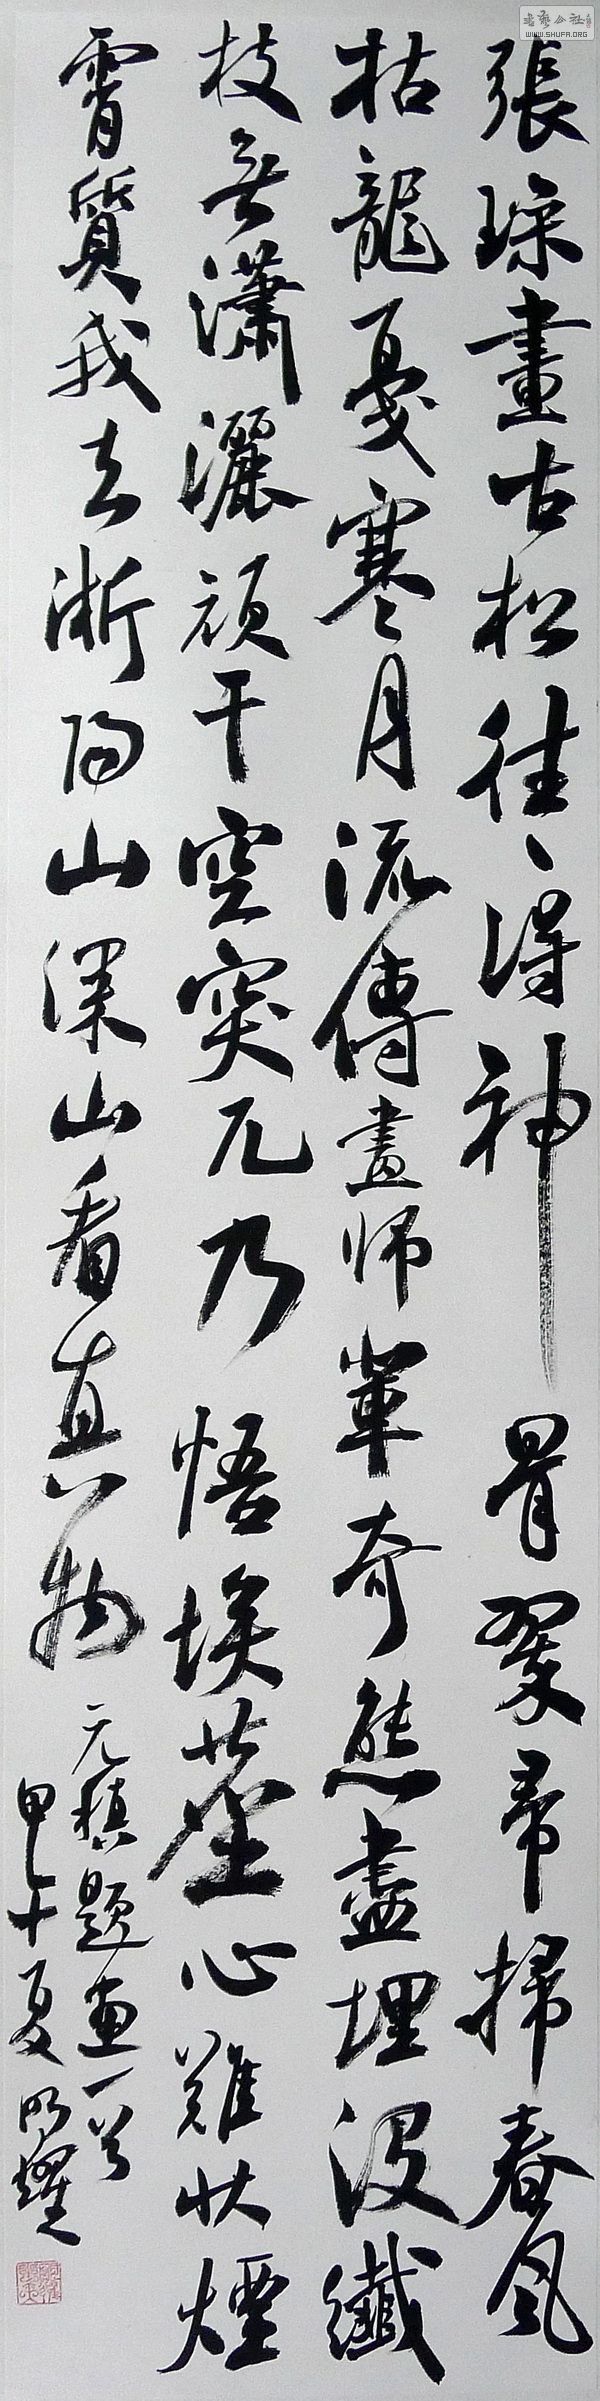 張璪畫古松往〻得神骨翠帚掃春風
枯龍戛寒月流傳畫師輩奇態盡埋沒纖
枝無瀟灑頑干空突兀乃悟埃塵心難狀煙
霄質我去淅陽山深山看真物
元稹題画一首
甲午夏明耀
書藝公社
WWW.SHUFA.ORG